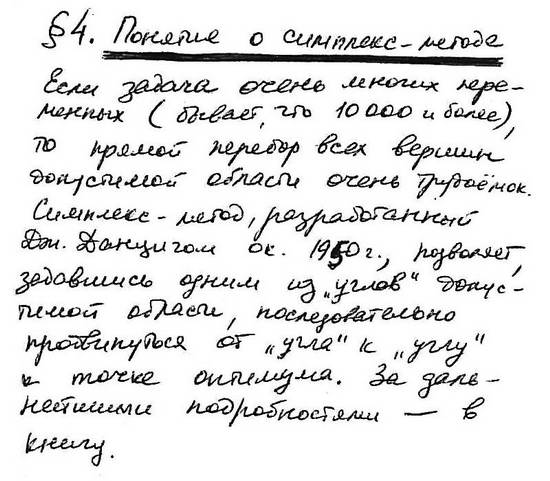 §4. Понятие о симплекс-методе
Если задача очень многих пере-
менных (бывает, что 10 000 и более),
то прямой перебор всех вершин
допустимой области очень трудоёмок.
Симплекс-метод, разработанный
Дж. Данцигом ок. 1950 г., позволяет,
задавшись одним из „углов" допус-
тимой области, последовательно
продвинуться от „угла" к „углу"
к точке оптимума. За даль-
нейшими подробностями — в
книгу.